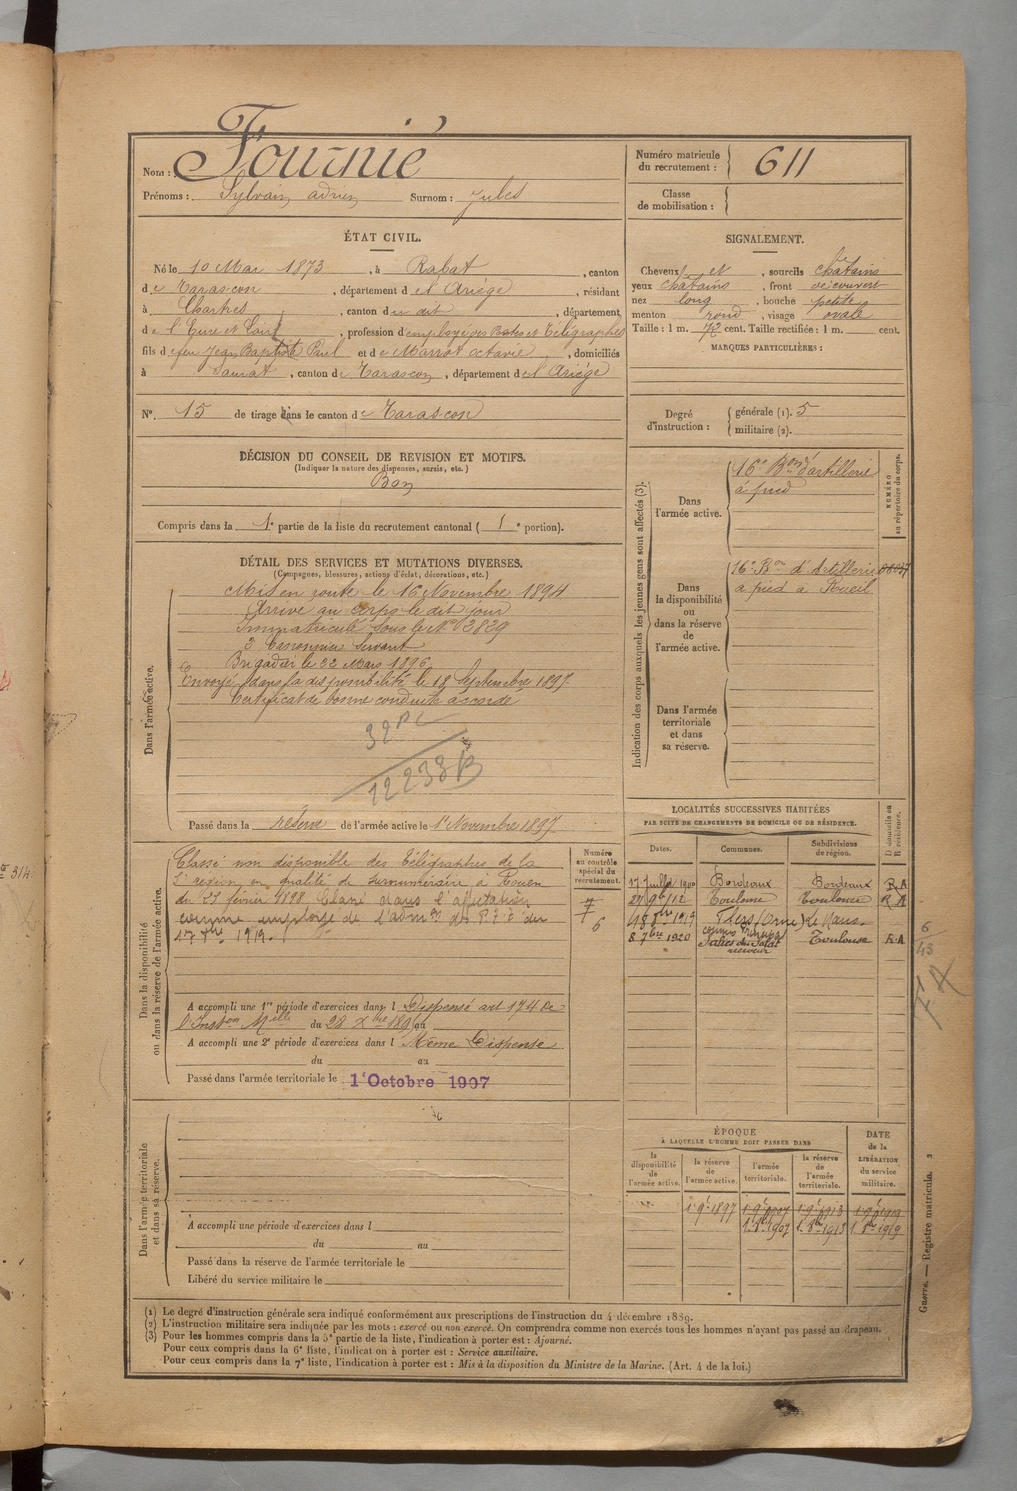 Nom : Fournié
Prénoms : Sylvain adrien Surnom : Jules
Numéro matricule du recrutement : 611
Classe de mobilisation :
ÉTAT CIVIL.
Né le 10 Mai 1873, à Rabat, canton
de Tarascon, département de l'Ariège, résidant
à Chartres, canton du dit, département
de l'Eure et Loir, profession d'employé des Postes et Télégraphes
fils de feu Jean Baptiste Paul et de Marrot octavie, domiciliés
à Saurat, canton de Tarascon, département de l'Ariège
N° 15 de tirage dans le canton de Tarascon
SIGNALEMENT.
Cheveux et, sourcils châtains
yeux châtains, front découvert
nez long, bouche petite
menton rond, visage ovale
Taille : 1 m. 72 cent. Taille rectifiée : 1 m. cent.
MARQUES PARTICULIÈRES :
Degré d'instruction : générale (1). 5
militaire (2).
DÉCISION DU CONSEIL DE REVISION ET MOTIFS.
(Indiquer la nature des dispenses, sursis, etc.)
Bon
Compris dans la 1e partie de la liste du recrutement cantonal ( 1e portion).
DÉTAIL DES SERVICES ET MUTATIONS DIVERSES.
(Campagnes, blessures, actions d'éclat, décorations, etc.)
Dans l'armée active.
Mis en route le 16 Novembre 1894
Arrivé au corps le dit jour
Immatriculé sous le N° 2829
2e Canonnier servant
Brigadier le 22 Mars 1896
Envoyé dans la disponibilité le 18 Septembre 1897
Certificat de bonne conduite accordé
12233B
Passé dans la réserve de l'armée active le 1er Novembre 1897
Indication des corps auxquels les jeunes gens sont affectés (3).
NUMÉRO au répertoire du corps.
Dans l'armée active.
16e Bon d'artillerie
à pied
Dans la disponibilité ou dans la réserve de l'armée active.
16e Bon d'Artillerie
à pied à Rueil
Dans l'armée territoriale et dans sa réserve.
Dans la disponibilité ou dans la réserve de l'armée active.
Numéro au contrôle spécial du recrutement.
Classé non disponible des Télégraphes de la
3e région en qualité de surnuméraire à Rouen
du 23 février 1898 Classé dans l'affectation
comme employé de l'admon des P.T.T. du
1919.
7
7
6
A accompli une 1re période d'exercices dans l Dispensé art 174 de
l'Inston Mlle du 28 Xbre 189 au
A accompli une 2e période d'exercices dans l Même Dispense
du au
Passé dans l'armée territoriale le 1er Octobre 1907
LOCALITÉS SUCCESSIVES HABITÉES
PAR SUITE DE CHANGEMENTS DE DOMICILE OU DE RÉSIDENCE.
Dates. Communes. Subdivisions de région. D domicile ou R résidence.
17 Juillet 1900 Bordeaux Bordeaux R A
27 9bre 12 Toulouse Toulouse R A
1919 Flers (Orne) Le Mans
8 7bre 1920 Salies du Salat Toulouse R.A
receveur
6/43
Dans l'armée territoriale et dans sa réserve.
A accompli une période d'exercices dans l
du au
Passé dans la réserve de l'armée territoriale le
Libéré du service militaire le
ÉPOQUE
À LAQUELLE L'HOMME DOIT PASSER DANS
la disponibilité de l'armée active.
la réserve de l'armée active.
l'armée territoriale.
la réserve de l'armée territoriale.
DATE de la LIBÉRATION du service militaire.
1 9bre 1897 1 9bre 1907 1 9bre 1913 1 9bre 1919
1 8bre 1907 1 8bre 1913 1 8bre 1919
Guerre. — Registre matricule.
(1) Le degré d'instruction générale sera indiqué conformément aux prescriptions de l'instruction du 4 décembre 1889.
(2) L'instruction militaire sera indiquée par les mots : exercé ou non exercé. On comprendra comme non exercés tous les hommes n'ayant pas passé au drapeau.
(3) Pour les hommes compris dans la 5e partie de la liste, l'indication à porter est : Ajourné.
Pour ceux compris dans la 6e liste, l'indication à porter est : Service auxiliaire.
Pour ceux compris dans la 7e liste, l'indication à porter est : Mis à la disposition du Ministre de la Marine. (Art. 4 de la loi.)